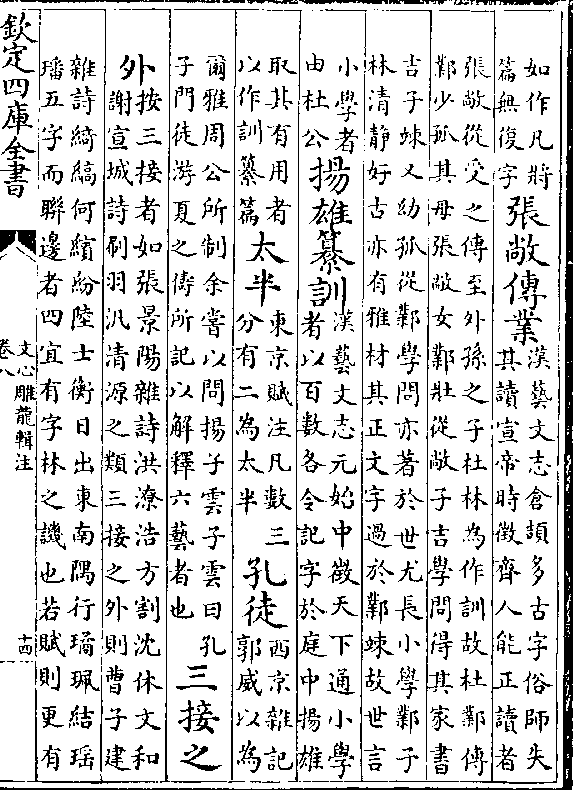 如作凡將
篇無復字
張敞傳業
漢藝文志倉頡多古字俗師失
其讀宣帝時徵齊人能正讀者
張敞從受之傳至外孫之子杜林為作訓故杜鄴傳
鄴少孤其母張敞女鄴壯從敞子吉學問得其家書
吉子竦又幼孤從鄴學問亦著於世尤長小學鄴子
林清靜好古亦有雅材其正文字過於鄴竦故世言
小學者
由杜公
揚雄纂訓
漢藝文志元始中徵天下通小學
者以百數各令記字於庭中揚雄
取其有用者
以作訓纂篇
太半
東京賦注凡數三
分有二為太半
孔徒
西京雜記
郭威以為
爾雅周公所制余嘗以問揚子雲子雲曰孔
子門徒游夏之儔所記以解釋六藝者也
三接之
外
按三接者如張景陽雜詩洪潦浩方割沈休文和
謝宣城詩刷羽汎清源之類三接之外則曹子建
雜詩綺縞何繽紛陸士衡日出東南隅行璚珮結瑶
璠五字而聯邊者四宜有字林之譏也若賦則更有
欽定四庫全書
文心雕龍輯注
卷八
十四